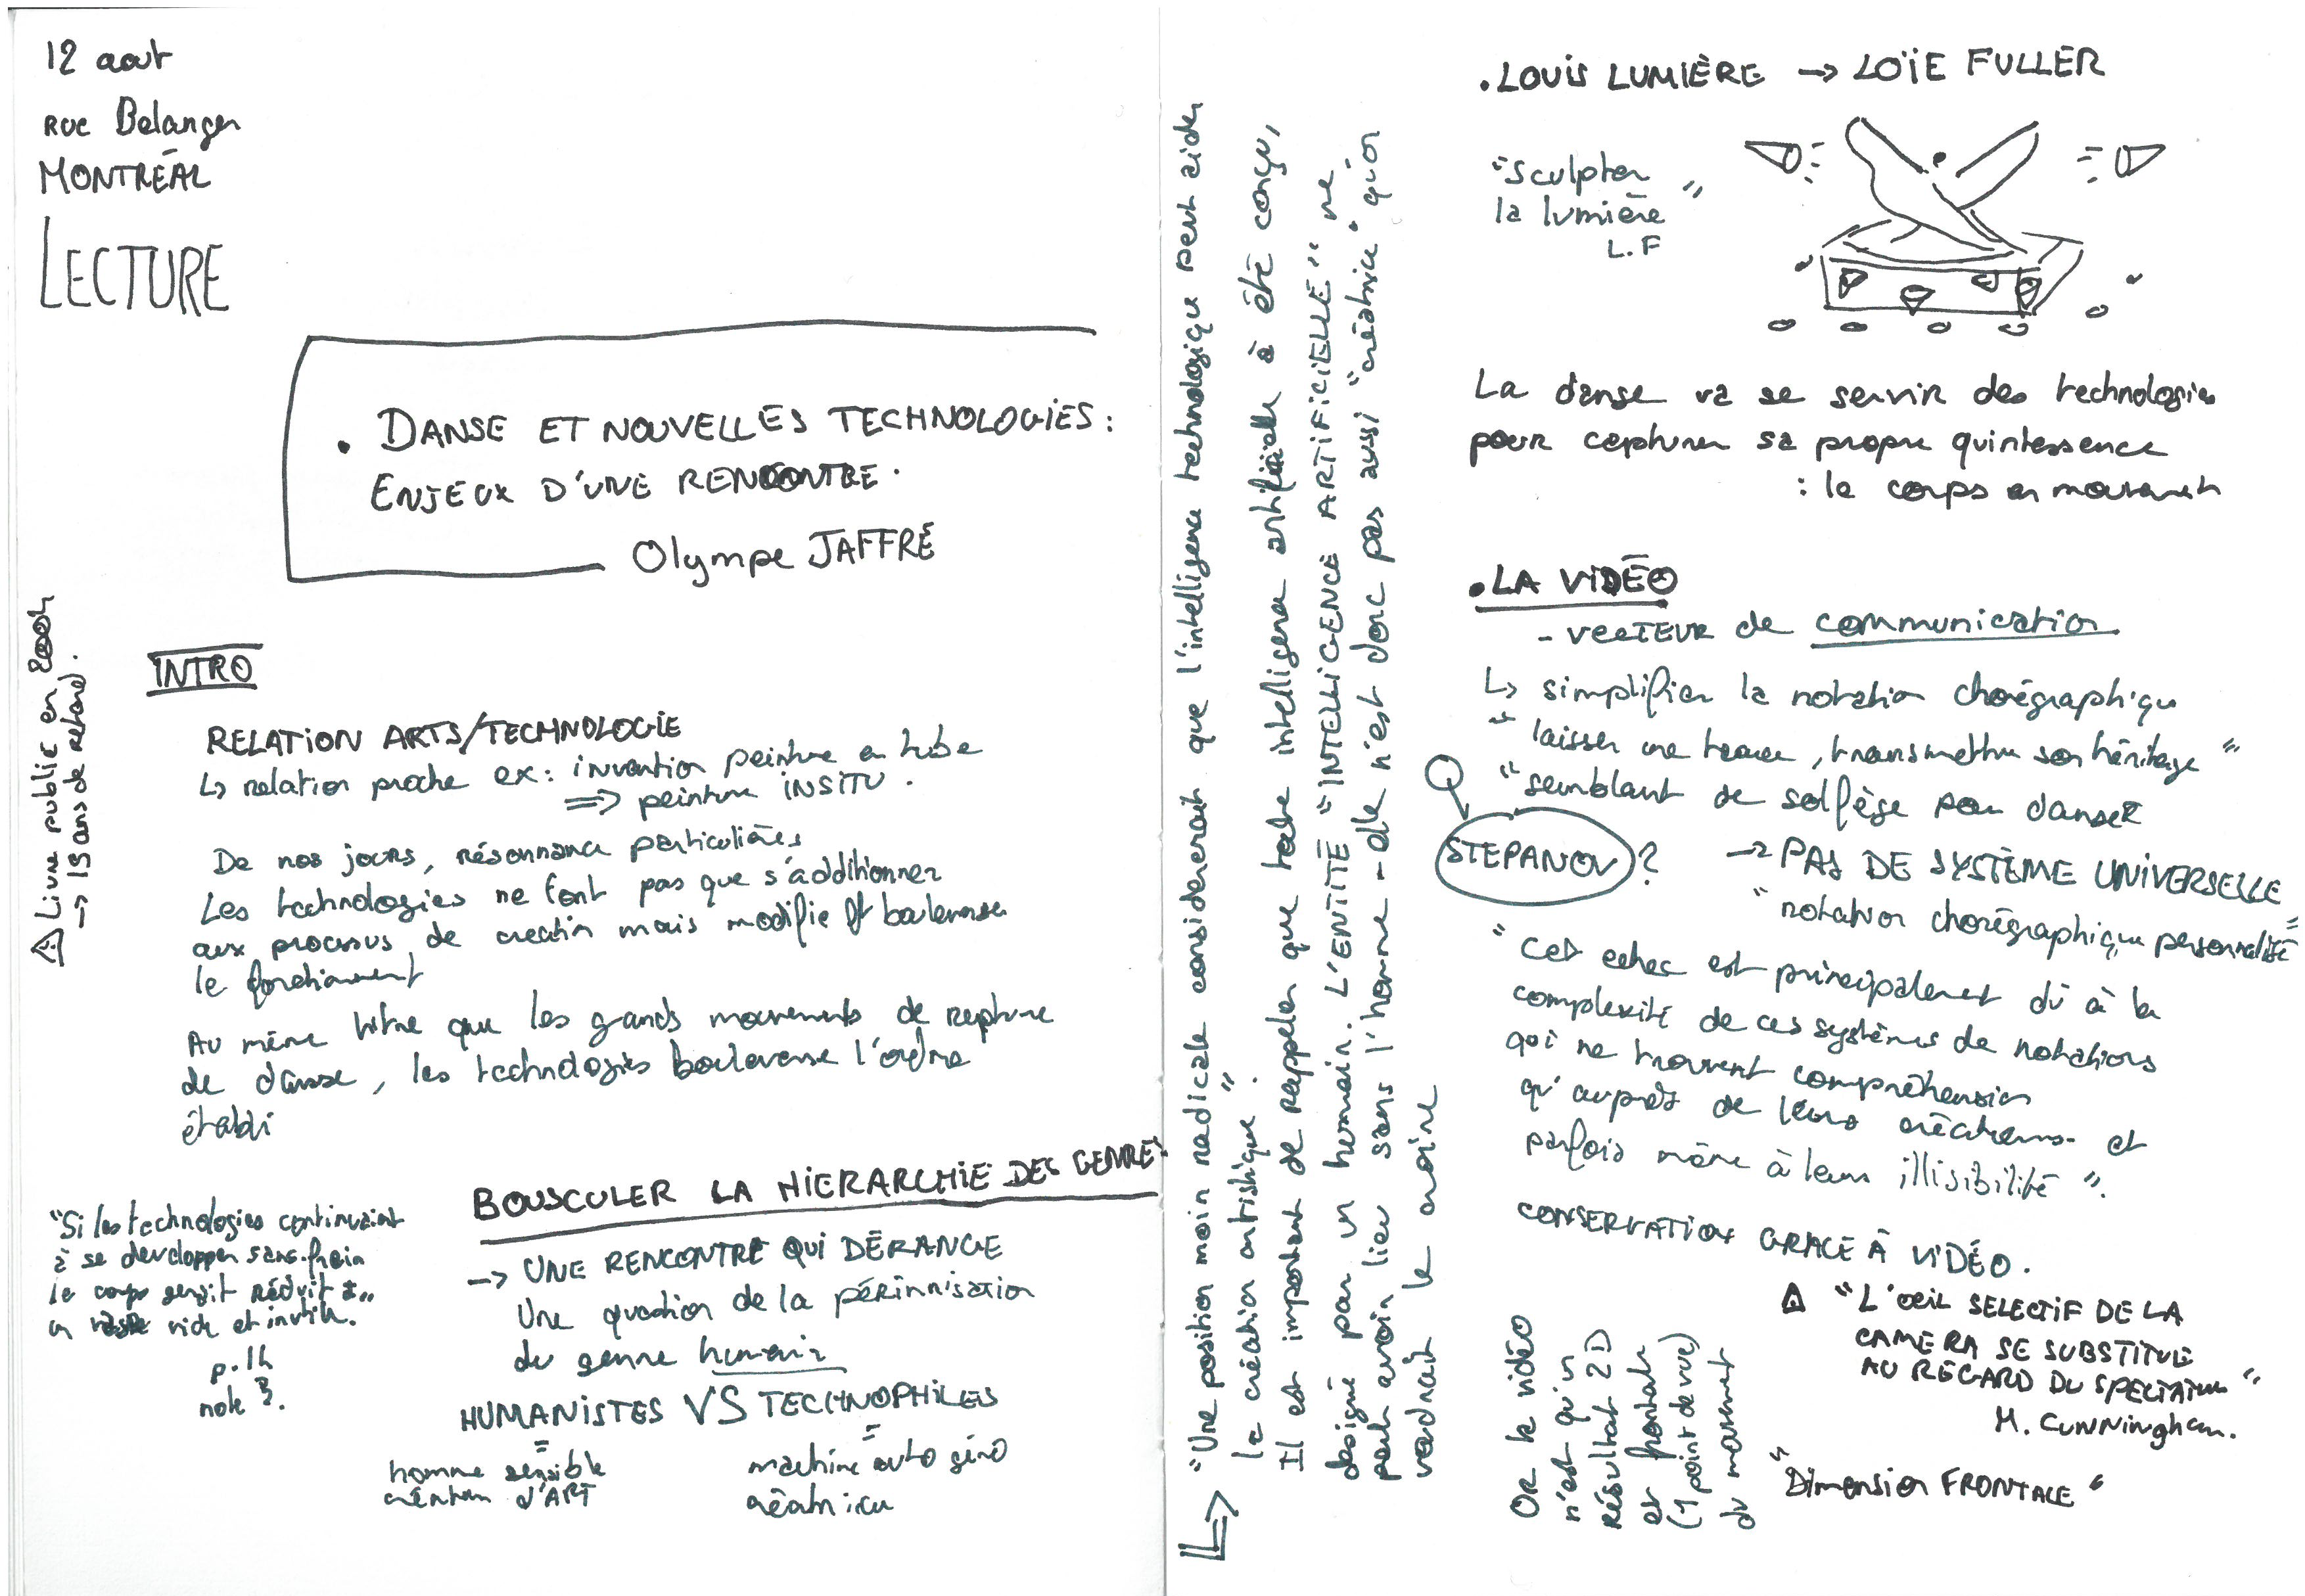 12 aout
RUE Belanger
MONTRÉAL
LECTURE
. DANSE ET NOUVELLES TECHNOLOGIES :
ENJEUX D'UNE RENCONTRE.
Olympe JAFFRÉ
⚠ Livre publié en 2004
→ 15 ans de retard.
INTRO
RELATION ARTS/TECHNOLOGIE
↳ relation proche ex: invention peinture en tube
⇒ peinture INSITU.
De nos jours, résonnance particulières
Les technologies ne font pas que s'additionner
aux processus de creation mais modifie et bouleverse
le fonctionnement
Au même titre que les grands mouvements de rupture
de danse, les technologies bouleverse l'ordre
établi
BOUSCULER LA HIERARCHIE DES GENRES
→ UNE RENCONTRE QUI DÉRANGE
Une question de la périnnisation
du genre humain
HUMANISTES VS TECHNOPHILES
= =
homme sensible
création d'ART
machine auto géné
créatrice
"Si les technologies continuaient
à se developper sans frein
le corps serait réduit à
un vide et inutile.
p.14
note 3.
↳ "Une position moin radicale considererait que l'intelligence technologique peut aider
la création artistique".
Il est important de rappeler que toute intelligence artificielle à été conçu,
désigné par un humain. L'ENTITÉ "INTELLIGENCE ARTIFICIELLE" ne
peut avoir lieu sans l'homme - elle n'est donc pas aussi "créatrice" qu'on
voudrait le croire
. LOUIS LUMIÈRE → LOÏE FULLER
"Sculpter
la lumière"
L.F
La danse va se servir des technologies
pour capturer sa propre quintessence
: le corps en mouvement
. LA VIDÉO
- VECTEUR de communication
↳ simplifier la notation chorégraphique
"laisser une trace, transmettre son héritage"
"semblant de solfège pour danser
STEPANOV ?
→ PAS DE SYSTÈME UNIVERSELLE
"notation chorégraphique personnalisé"
"Cet echec est principalement dû à la
complexité de ces systèmes de notations
qui ne trouvent compréhension
qu'auprès de leurs créateurs et
parfois même à leur illisibilité".
CONSERVATION GRACE À VIDÉO.
⚠ "L'OEIL SELECTIF DE LA
CAMERA SE SUBSTITUE
AU REGARD DU SPECTATEUR"
M. CUNNINGHAM.
OR la vidéo
n'est qu'un
résultat 2D
et frontale
(1 point de vue)
du mouvement
"Dimension FRONTALE"